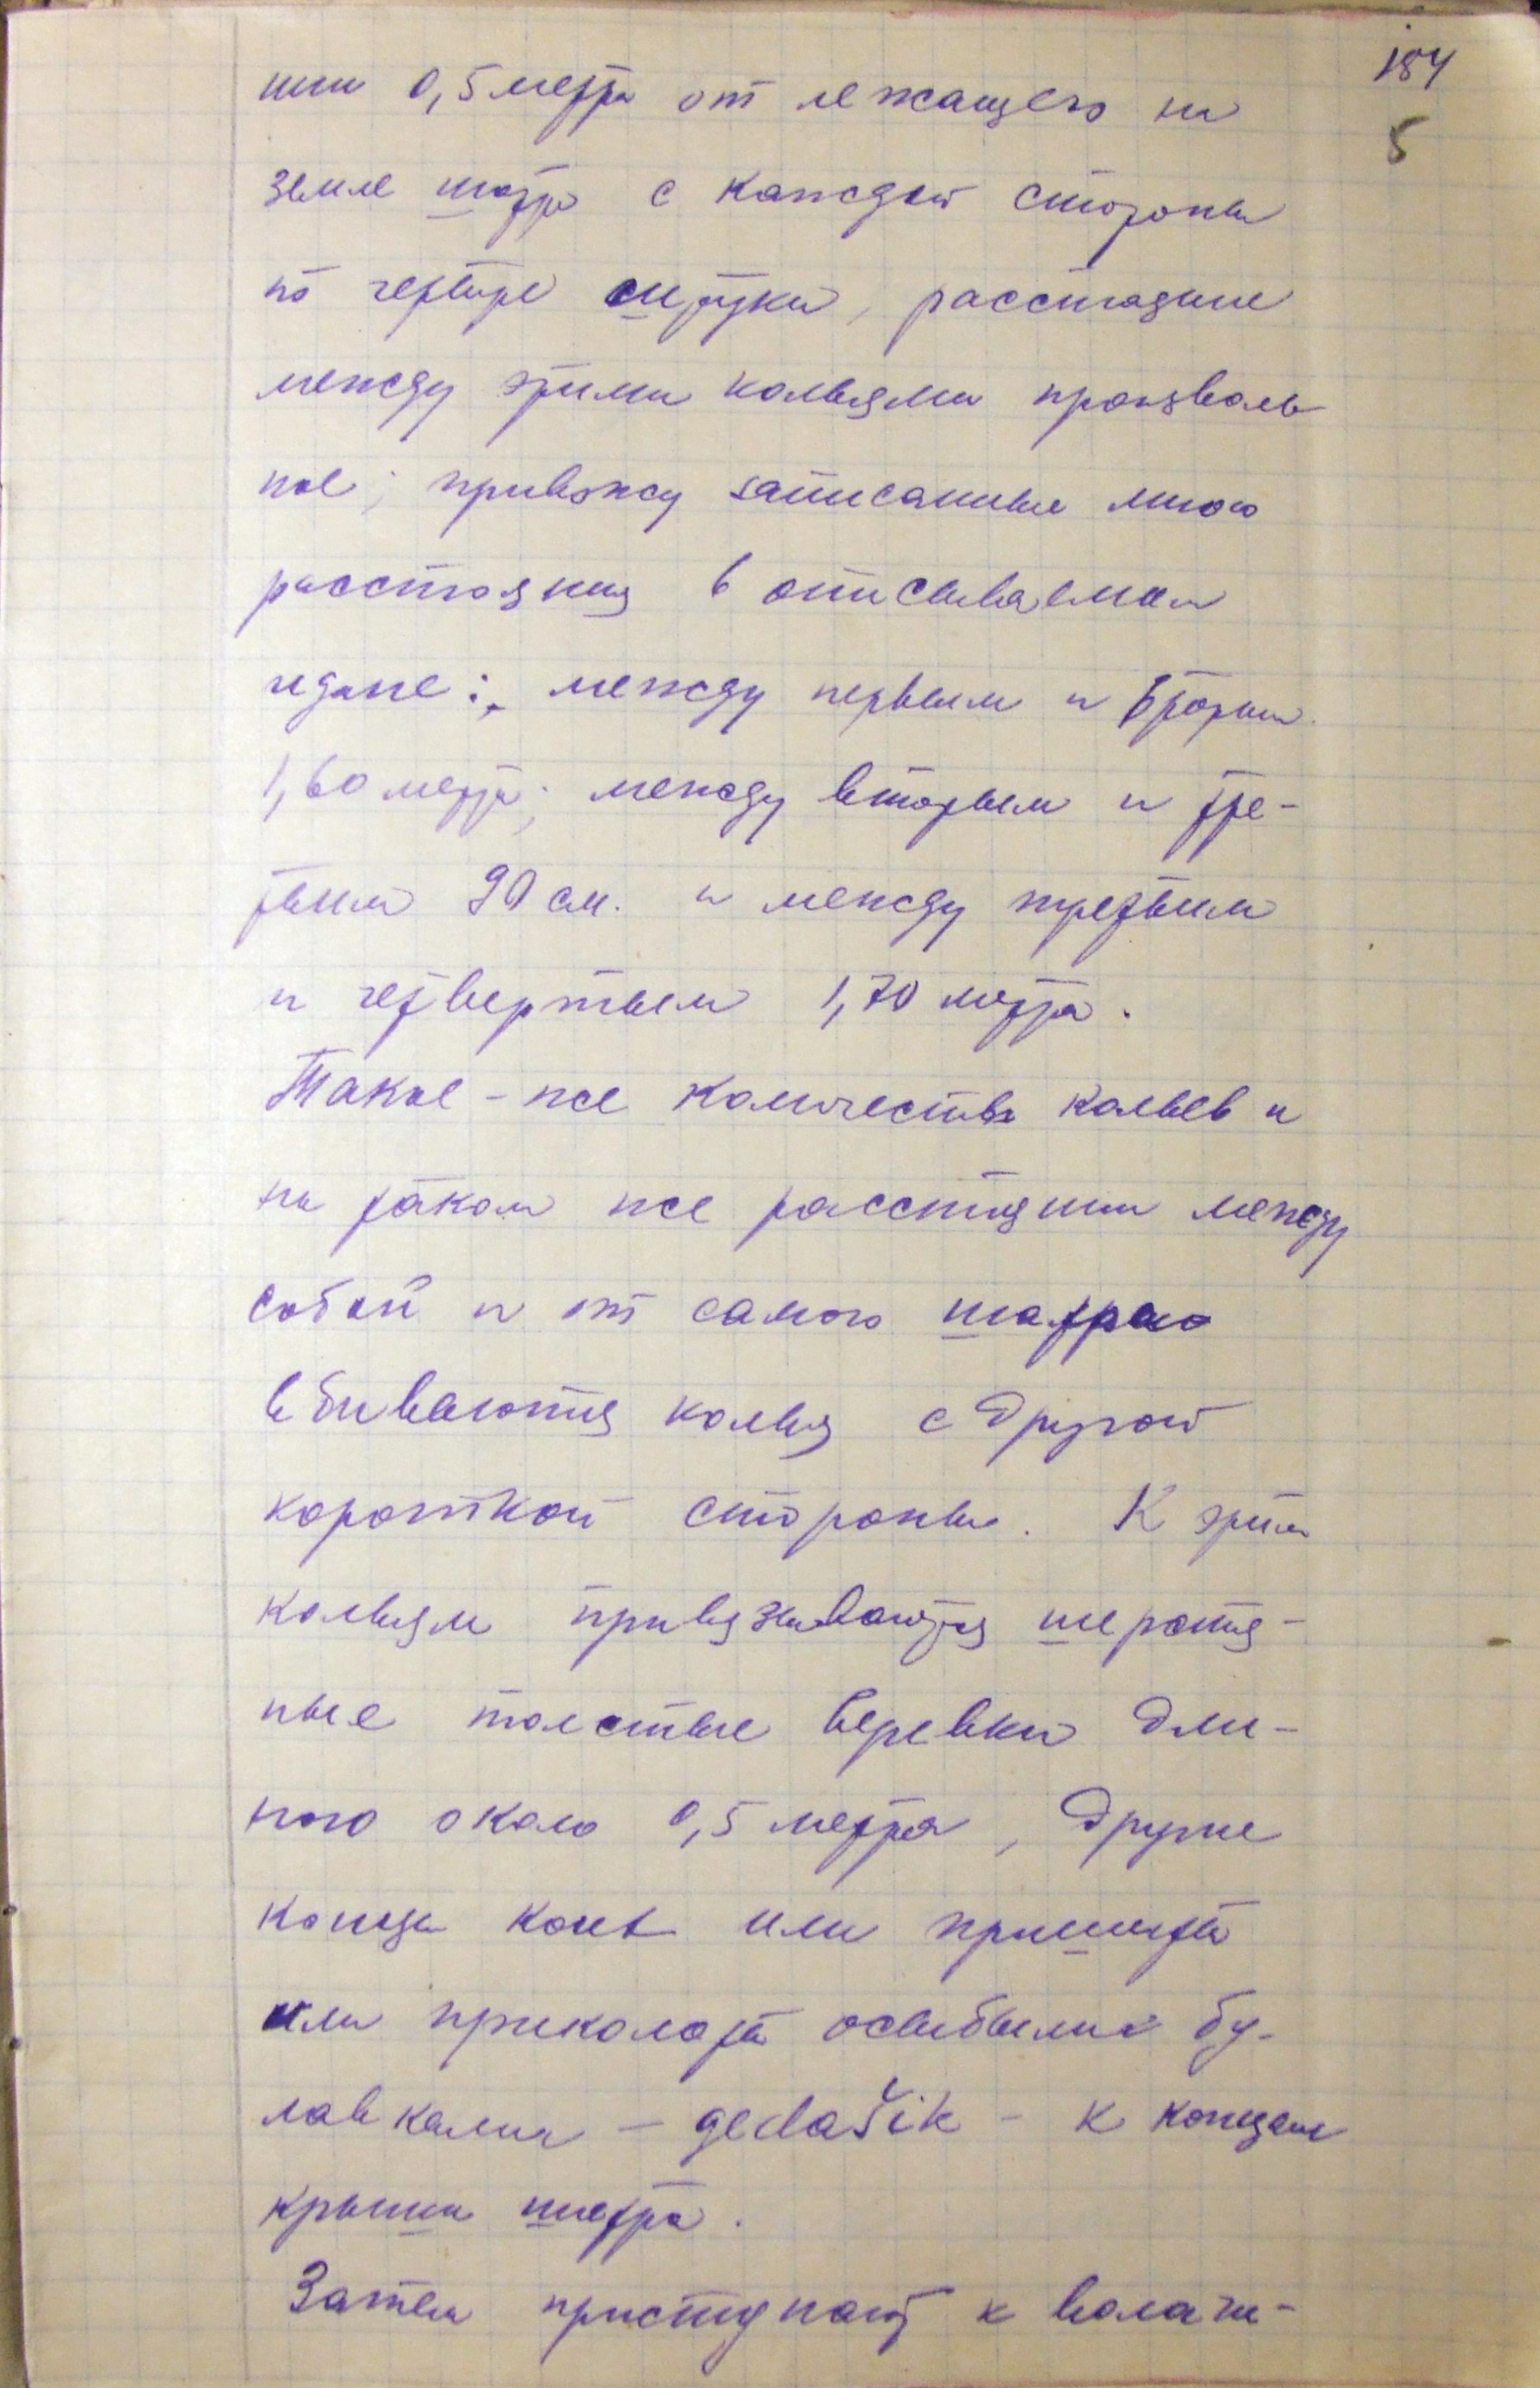 184
5
нии 0,5 метра от лежащего на
земле шатра с каждой стороны
по четыре штуки, расстояние
между этими кольями произволь
ное; привожу записанные мною
расстояния в описываемом
чадане: между первым и вторым
1,60 метра; между вторым и тре-
тьим 90 см. и между третьим
и четвертым 1,70 метра.
Такое-же количество кольев и
на таком же расстоянии между
собой и от самого шатра
вбиваются колья с другой
короткой стороны. К этим
кольям привязываются шерстя-
ные толстые веревки дли-
ною около 0,5 метра, другие
концы коих или пришиты
или приколоты особыми бу-
лавками – gedašik – к концам
крыши шатра.
Затем приступают к волоче-